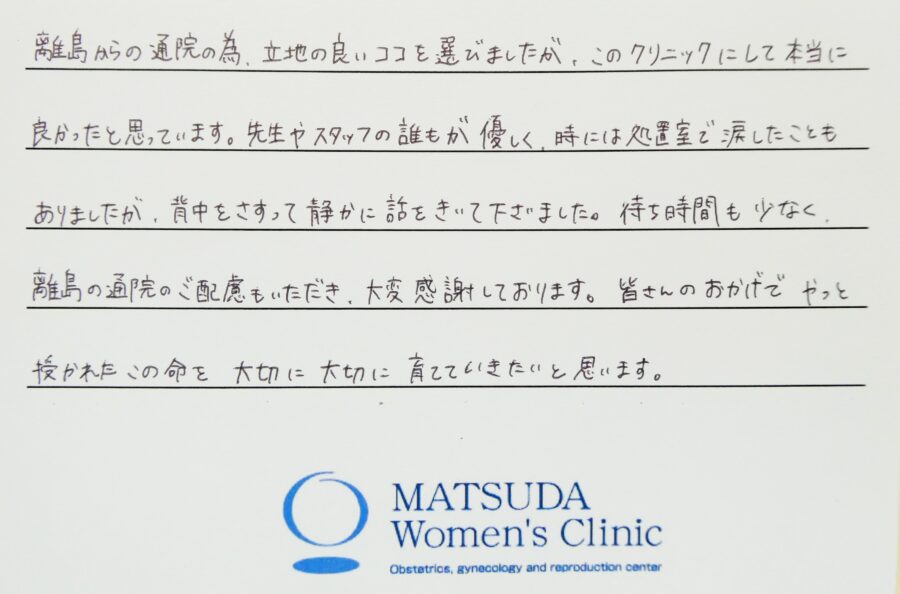 離島からの通院の為、立地の良いココを選びましたが、このクリニックにして本当に
良かったと思っています。先生やスタッフの誰もが優しく、時には処置室で涙したことも
ありましたが、背中をさすって静かに話をきいて下さいました。待ち時間も少なく、
離島の通院のご配慮もいただき、大変感謝しております。皆さんのおかげでやっと
授かれたこの命を大切に大切に育てていきたいと思います。
MATSUDA
Women's Clinic
Obstetrics, gynecology and reproduction center